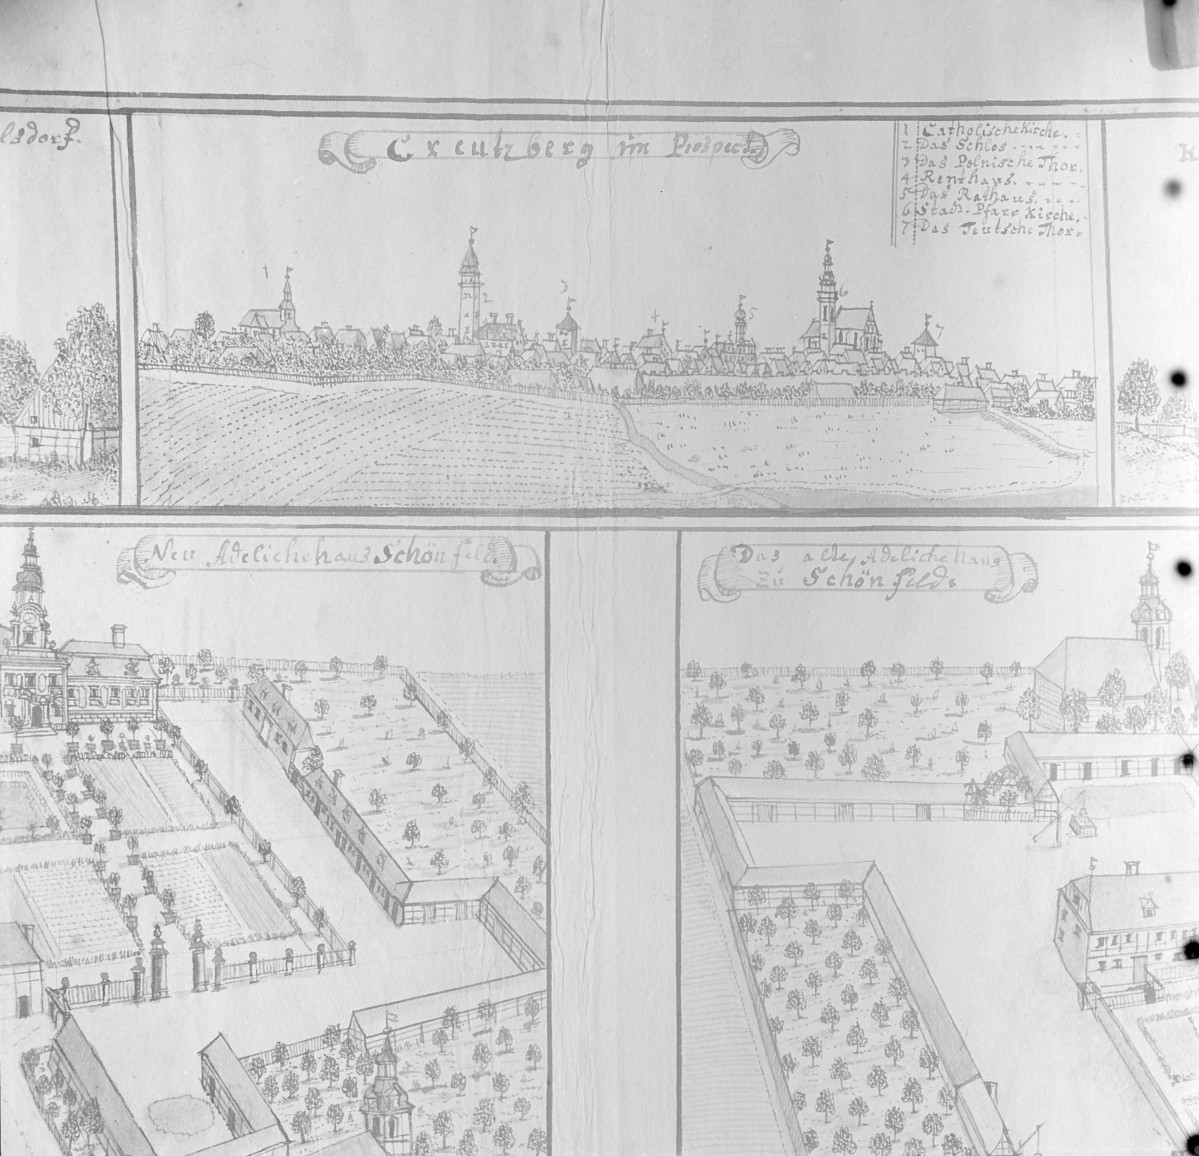 lsdorf.
Creutzberg im Prospect.
1 Catholische Kirche.
2 Das Schlos
3 Das Polnische Thor.
4 Renthaus.
5 Das Rathaus.
6 Stadt-Pfarr Kirche.
7 Das Teutsche Thor
K
1
2
3
4
5
6
7
Neu Adelichehaus Schönfeld.
Das alte Adelichehaus
zu Schönfeld.